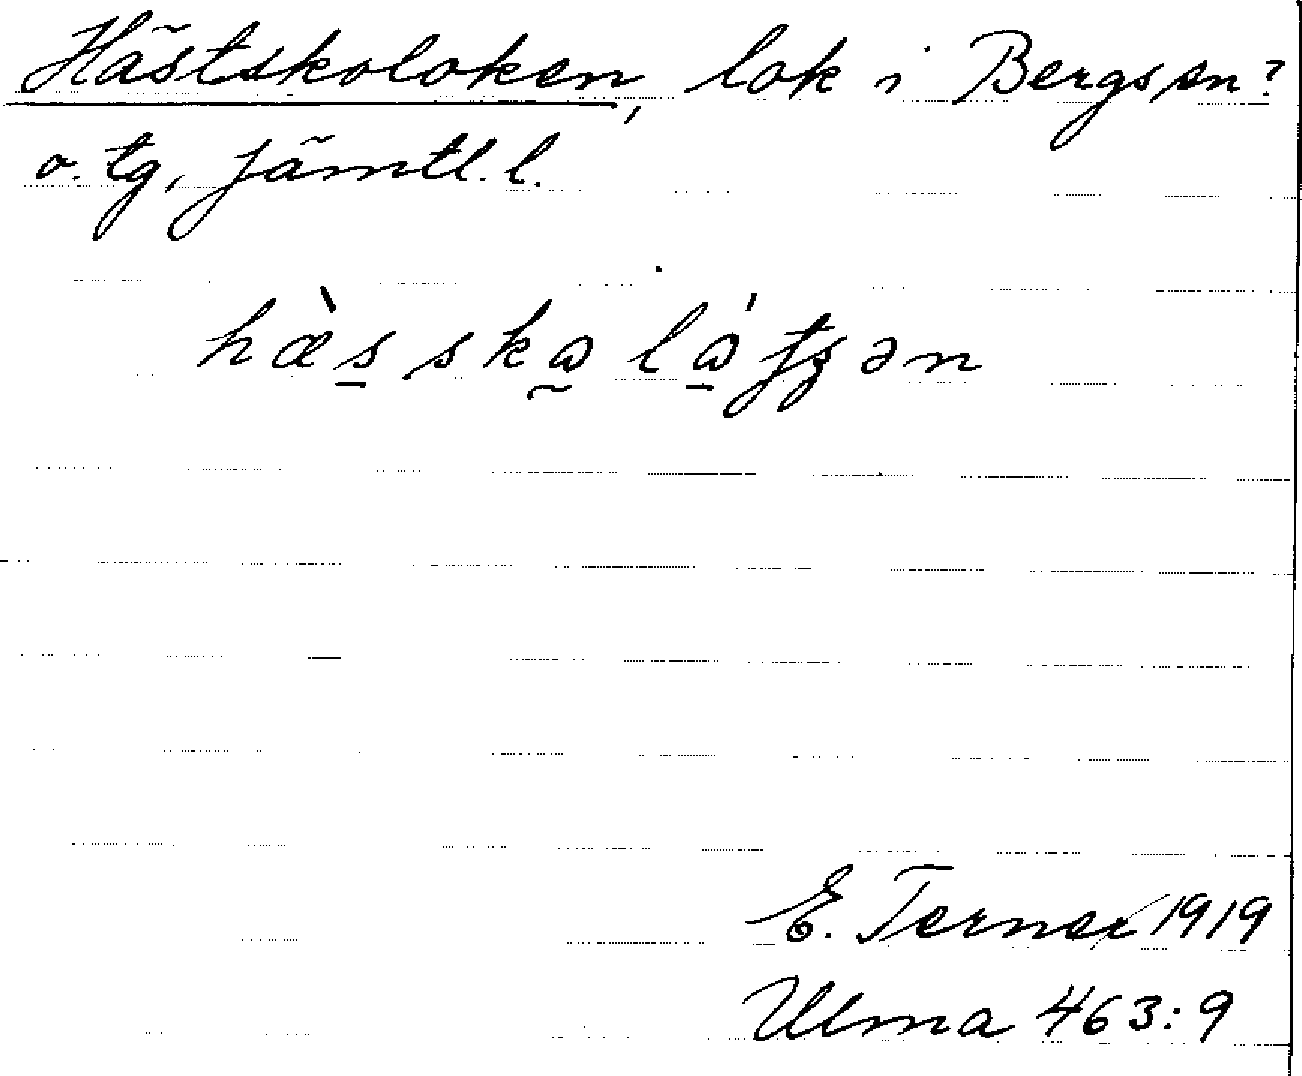 Hästskoloken, lok i Bergs sn?
o. tg, Jämtl. l.
hæ̀s skala ́fʒən
E. Terner 1919
Ulma 463:9